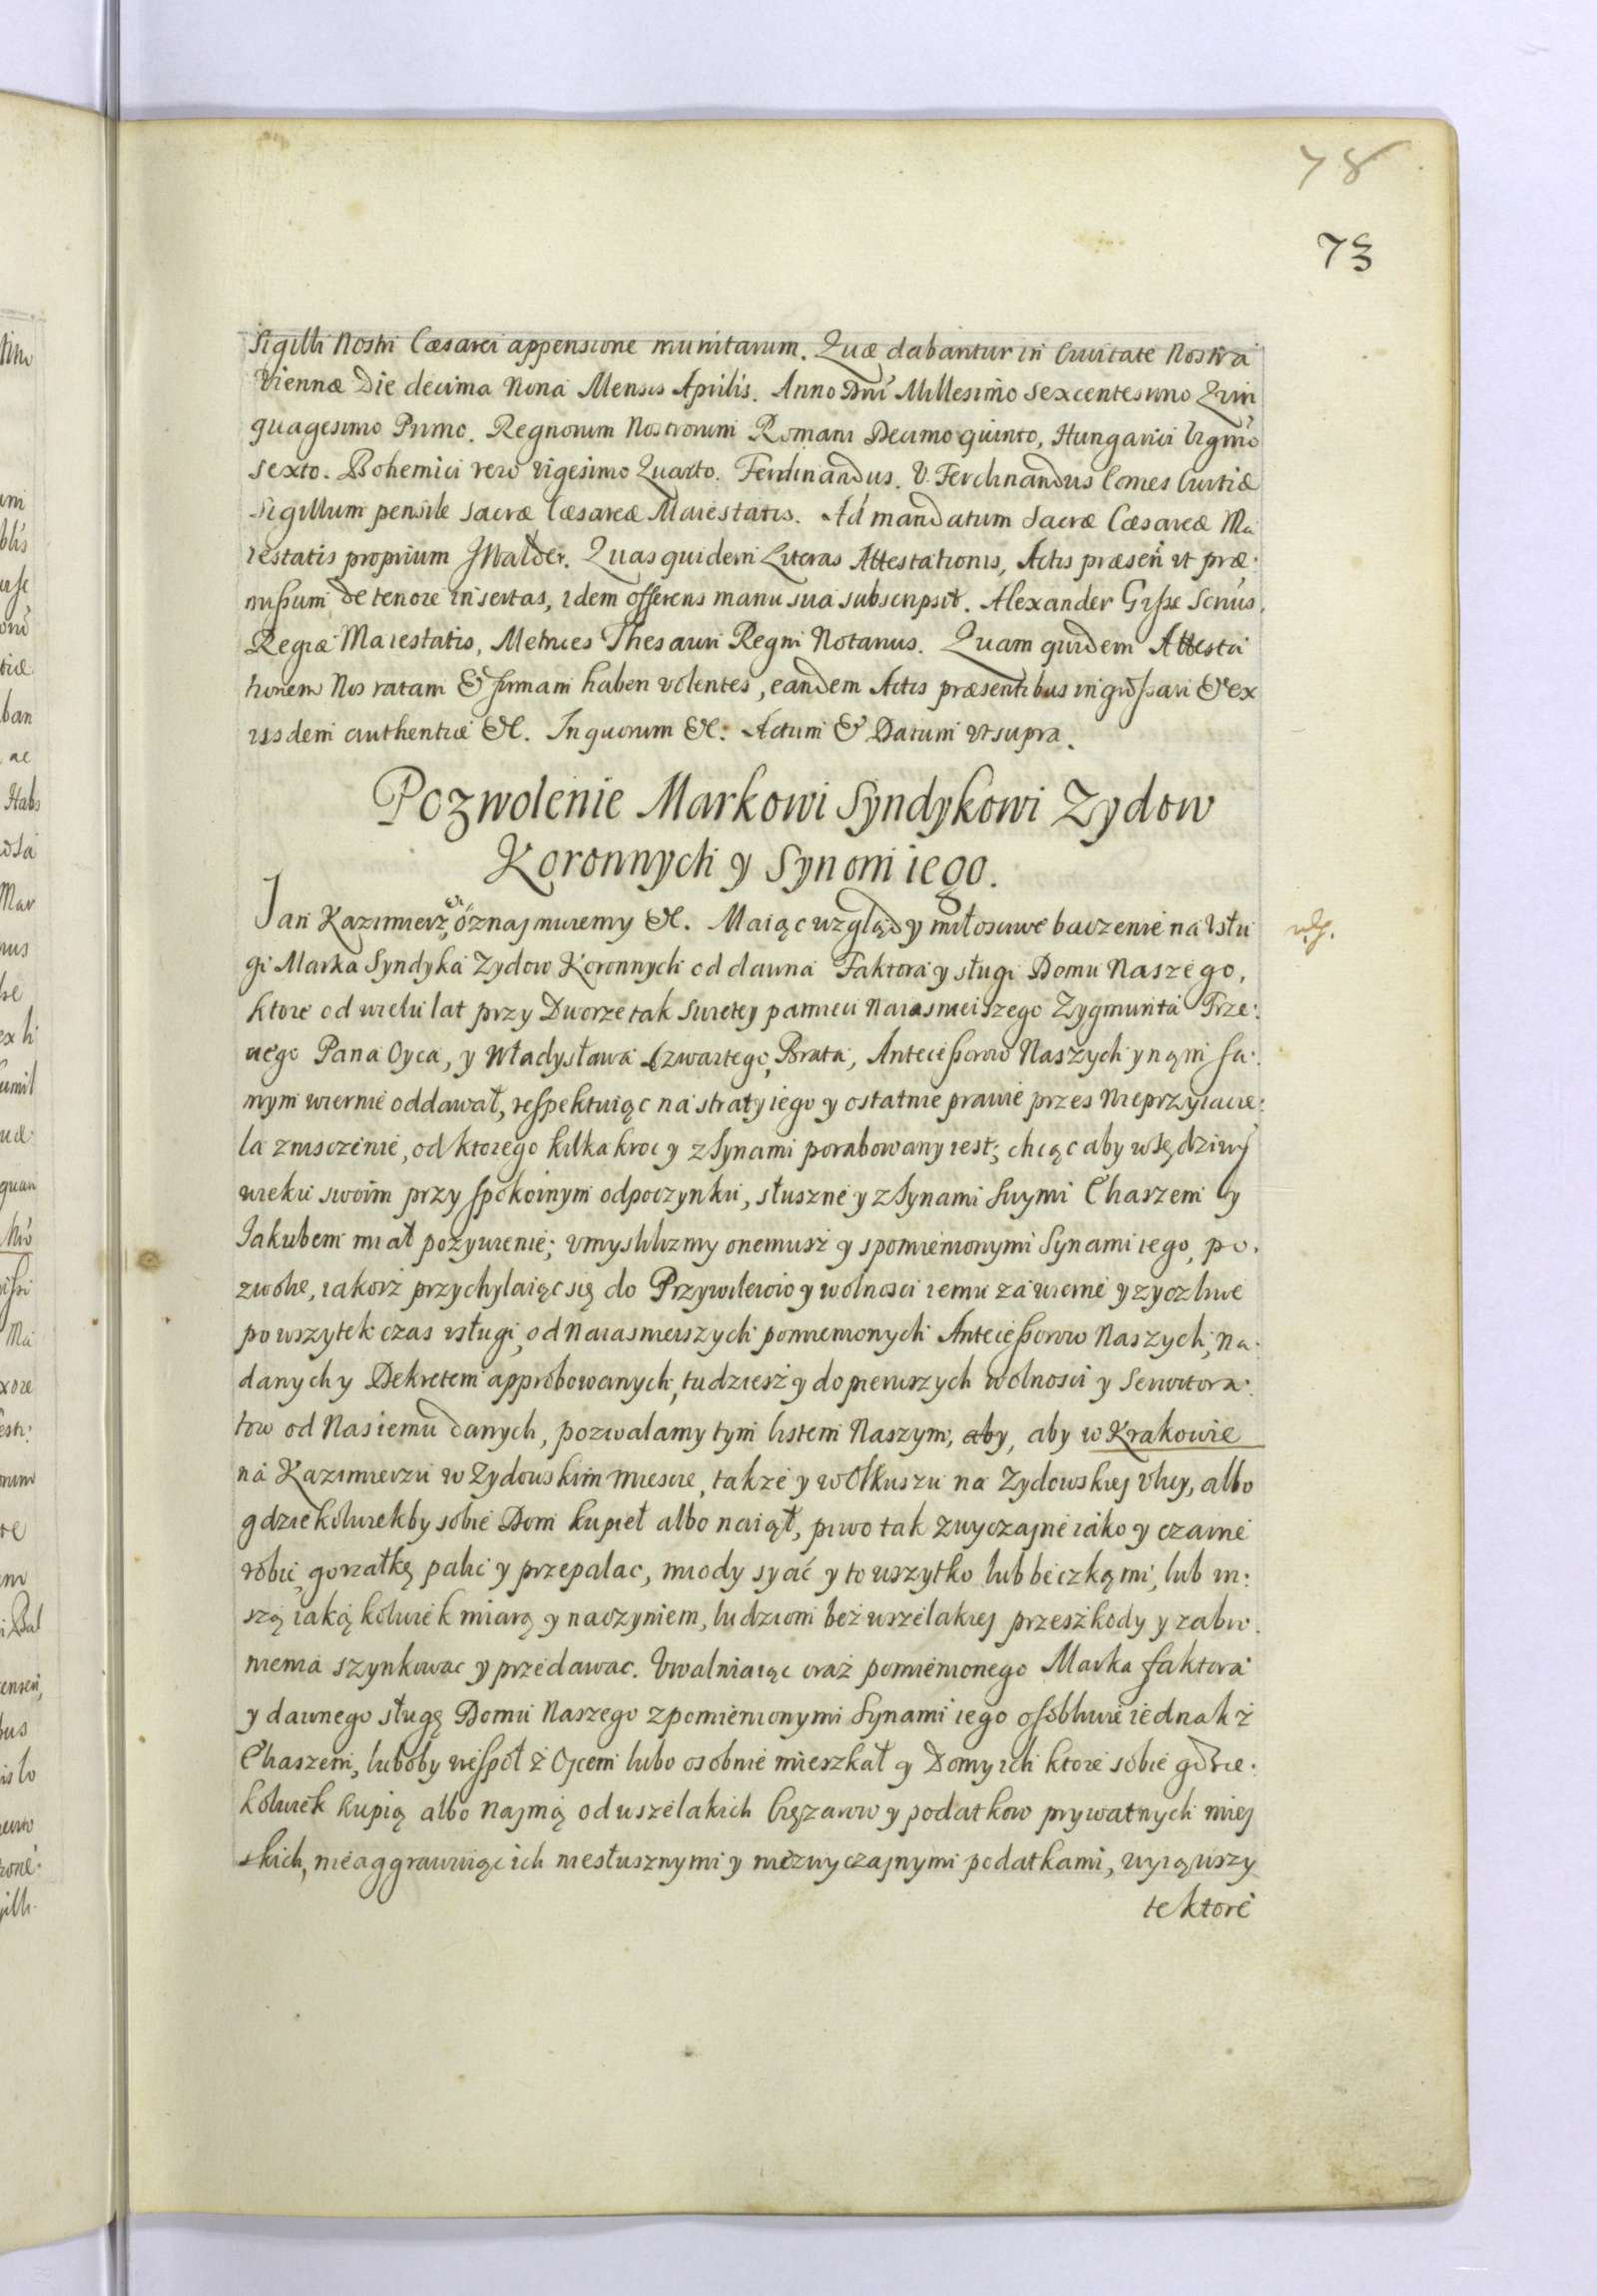 78
73
Sigilli Nostri Cæsarei appensione munitarum. Quæ dabantur in Civitate Nostra
Viennæ Die decima Nona Mensis Aprilis. Anno Dni Millesimo sexcentesimo Quin
quagesimo Primo. Regnorum Nostrorum Romani Decimo quinto, Hungarici Vigmo
sexto. Bohemici vero vigesimo Quarto. Ferdinandus. V. Ferdinandus Comes Curtiæ
Sigillum pensile Sacræ Cæsareæ Maiestatis. Ad mandatum Sacræ Cæsareæ Ma
iestatis proprium JWalder. Quas quidem Literas Attestationis, Actis præsen̄ ut præ:
missum de tenore insertas, idem offerens manu sua subscripsit. Alexander Gisse Scrius,
Regiæ Maiestatis, Metrices Thesauri Regni Notarius. Quam quidem Attesta
tionem Nos ratam & firmam haberi volentes, eandem Actis præsentibus ingrossari & ex
iisdem authenticæ &c. In quorum &c. Actum & Datum ut supra.
Pozwolenie Markowi Syndykowi Zydow
Koronnych y Synom iego.
Jan Kazimierz, &c oznajmuiemy &c. Maiąc wzgląd y miłosciwe baczenie na Usłu
gi Marka Syndyka Zydow Koronnych od dawna Faktora y sługi Domu Naszego,
ktore od wielu lat przy Dworze tak swietey pamieci Naiasnieiszego Zygmunta Trze:
ciego Pana Oyca, y Władysława Czwartego, Brata, Antecessorow Naszych y nąm sa:
mym wiernie oddawał, respektuiąc na straty iego y ostatnie prawie przes Nieprzyiacie:
la zniszczenie, od ktorego kilka kroc y z Synami porabowany iest; chcąc aby w sędziwy
wieku swoim przy spokoinym odpoczynku, słuszne y z Synami swymi Chaszem y
Jakubem miał pozywienie; umyslilizmy onemusz y spomienionymi Synami iego, po:
zwolic, iakosz przychylaiąc się do Przywileiow y wolnosci iemu za wierne y zyczliwe
po wszytek czas usługi, od Naiasnieiszych pomienionych Antecessorow Naszych, na:
danych y Dekretem approbowanych, tudziesz y do pierwszych wolnosci y Serwitora:
tow od Nas iemu danych, pozwalamy tym listem Naszym, aby, aby w Krakowie
na Kazimierzu w Zydowskim miescie, takze y w Olkuszu na Zydowskiej Ulicy, albo
gdziekolwiekby sobie Dom kupieł albo naiął, piwo tak zwyczajne iako y czarne
robic, gorzałkę palic y przepalac, miody sycić y to wszytko lub beczkąmi, lub in:
szą iakąkolwiek miarą y naczyniem, ludziom bez wszelakiej przeszkody y zabro:
nienia szynkowac y przedawac. Uwalniaiąc oraz pomienionego Marka faktora
y dawnego sługę Domu Naszego z pomienionymi Synami iego osobliwie iednak z
Chaszem, luboby wespoł z Ojcem lubo osobnie mieszkał y Domy ich ktore sobie gdzie:
kolwiek kupią albo najmą od wszelakich Cięzarow y podatkow prywatnych miej
skich, nieaggrawuiąc ich niesłusznymi y niezwyczajnymi podatkami, wyiąwszy
te ktore